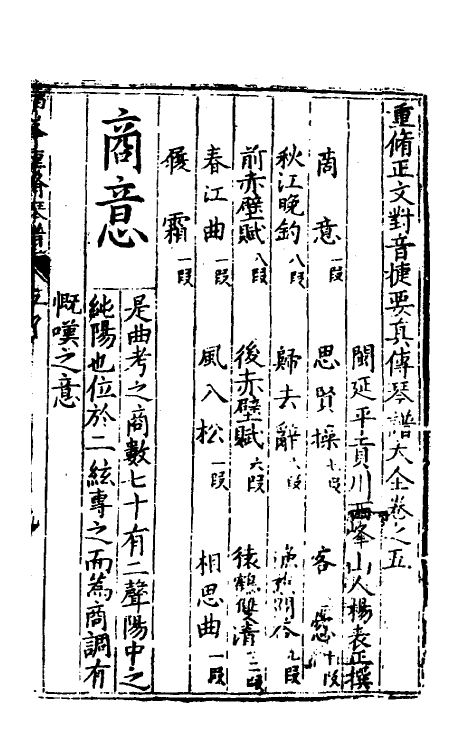 重脩正文對音捷要真傳琴譜大全卷之五
閩延平貢川西峰山人楊表正撰
商意 一段 思賢操 七段 客 十段
秋江晚釣 八段 歸去辭 八段 漁樵問答 九段
前赤壁賦 八段 後赤壁賦 六段 猿鶴雙清 二段
春江曲 一段 風入松 一段 相思曲 一段
履霜 一段
商意
是曲考之商數七十有二聲陽中之
純陽也位於二絃專之而為商調有
慨嘆之意